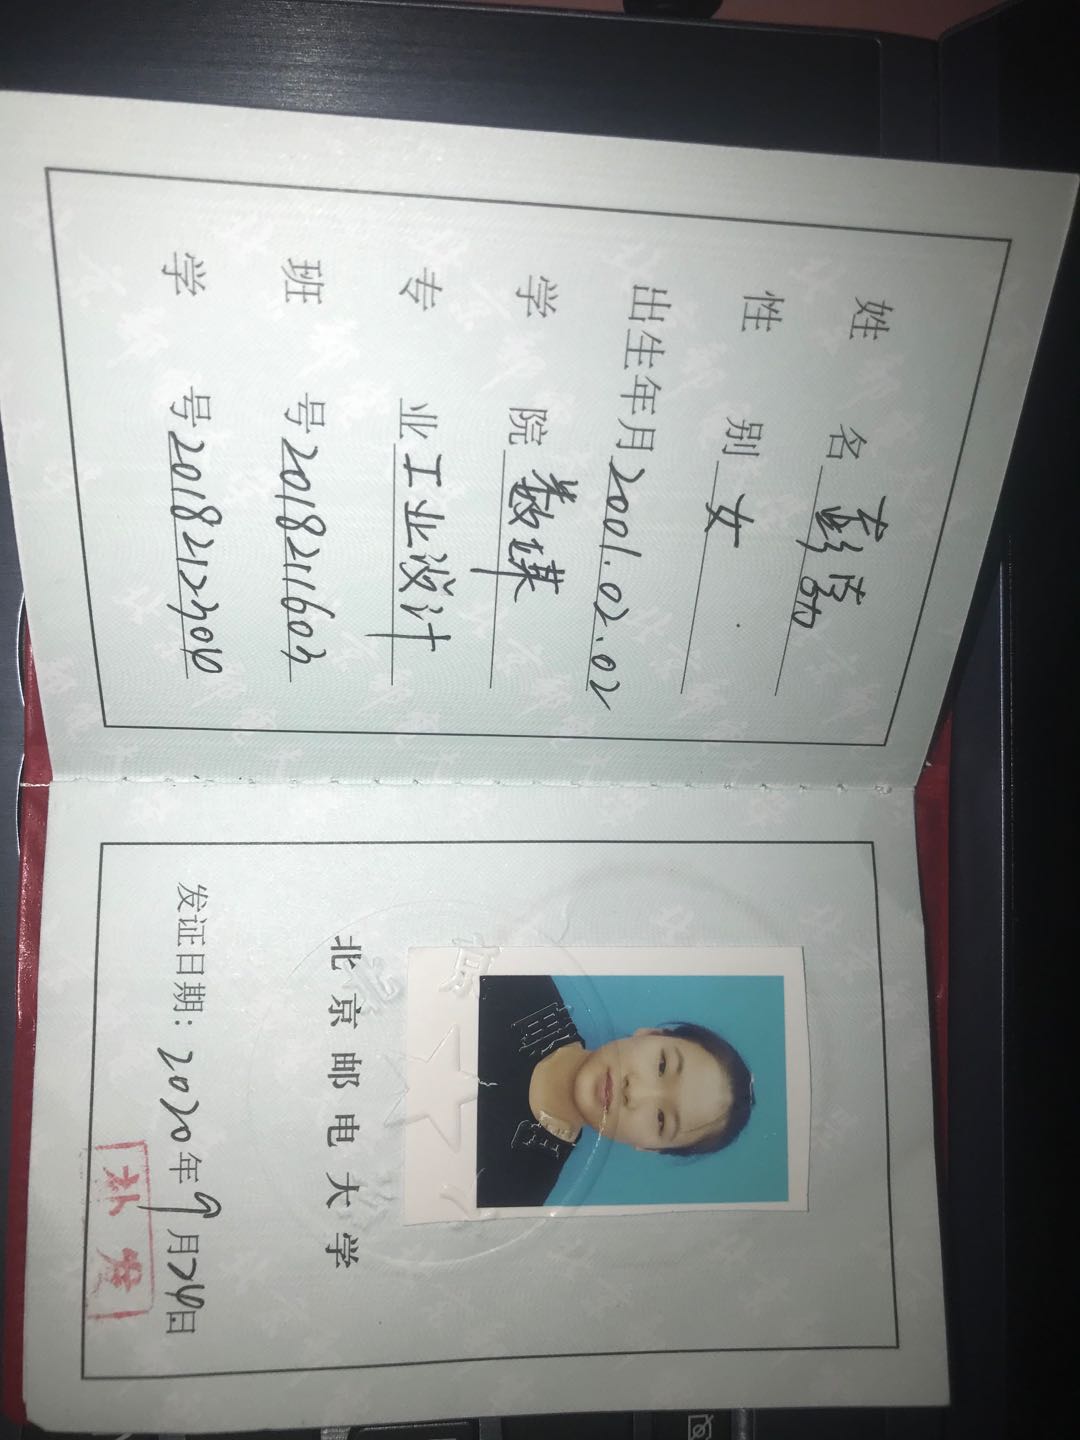 姓名 彭
性别 女
出生年月 2001.02.02
学院 数媒
专业 工业设计
班号 2018211603
学号 2018212306
北京邮电大学
发证日期：2020年9月24日
补发